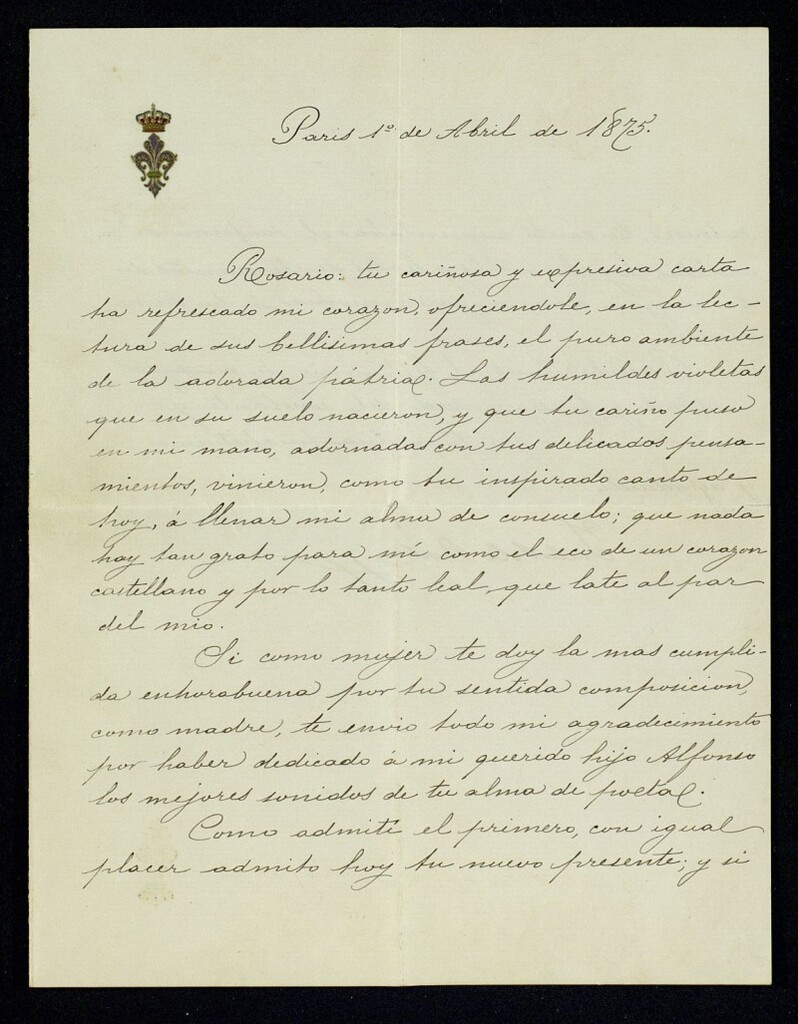 Paris 1º de Abril de 1875.
Rosario: tu cariñosa y expresiva carta
ha refrescado mi corazon, ofreciendole, en la lec-
tura de sus bellisimas frases, el puro ambiente
de la adorada pátria. Las humildes violetas
que en su suelo nacieron, y que tu cariño puso
en mi mano, adornadas con tus delicados pensa-
mientos, vinieron, como tu inspirado canto de
hoy, á llenar mi alma de consuelo; que nada
hay tan grato para mí como el eco de un corazon
castellano y por lo tanto leal, que late al par
del mio.
Si como mujer te doy la mas cumpli-
da enhorabuena por tu sentida composicion,
como madre, te envio todo mi agradecimiento
por haber dedicado á mi querido hijo Alfonso
los mejores sonidos de tu alma de poeta.
Como admití el primero, con igual
placer admito hoy tu nuevo presente; y si